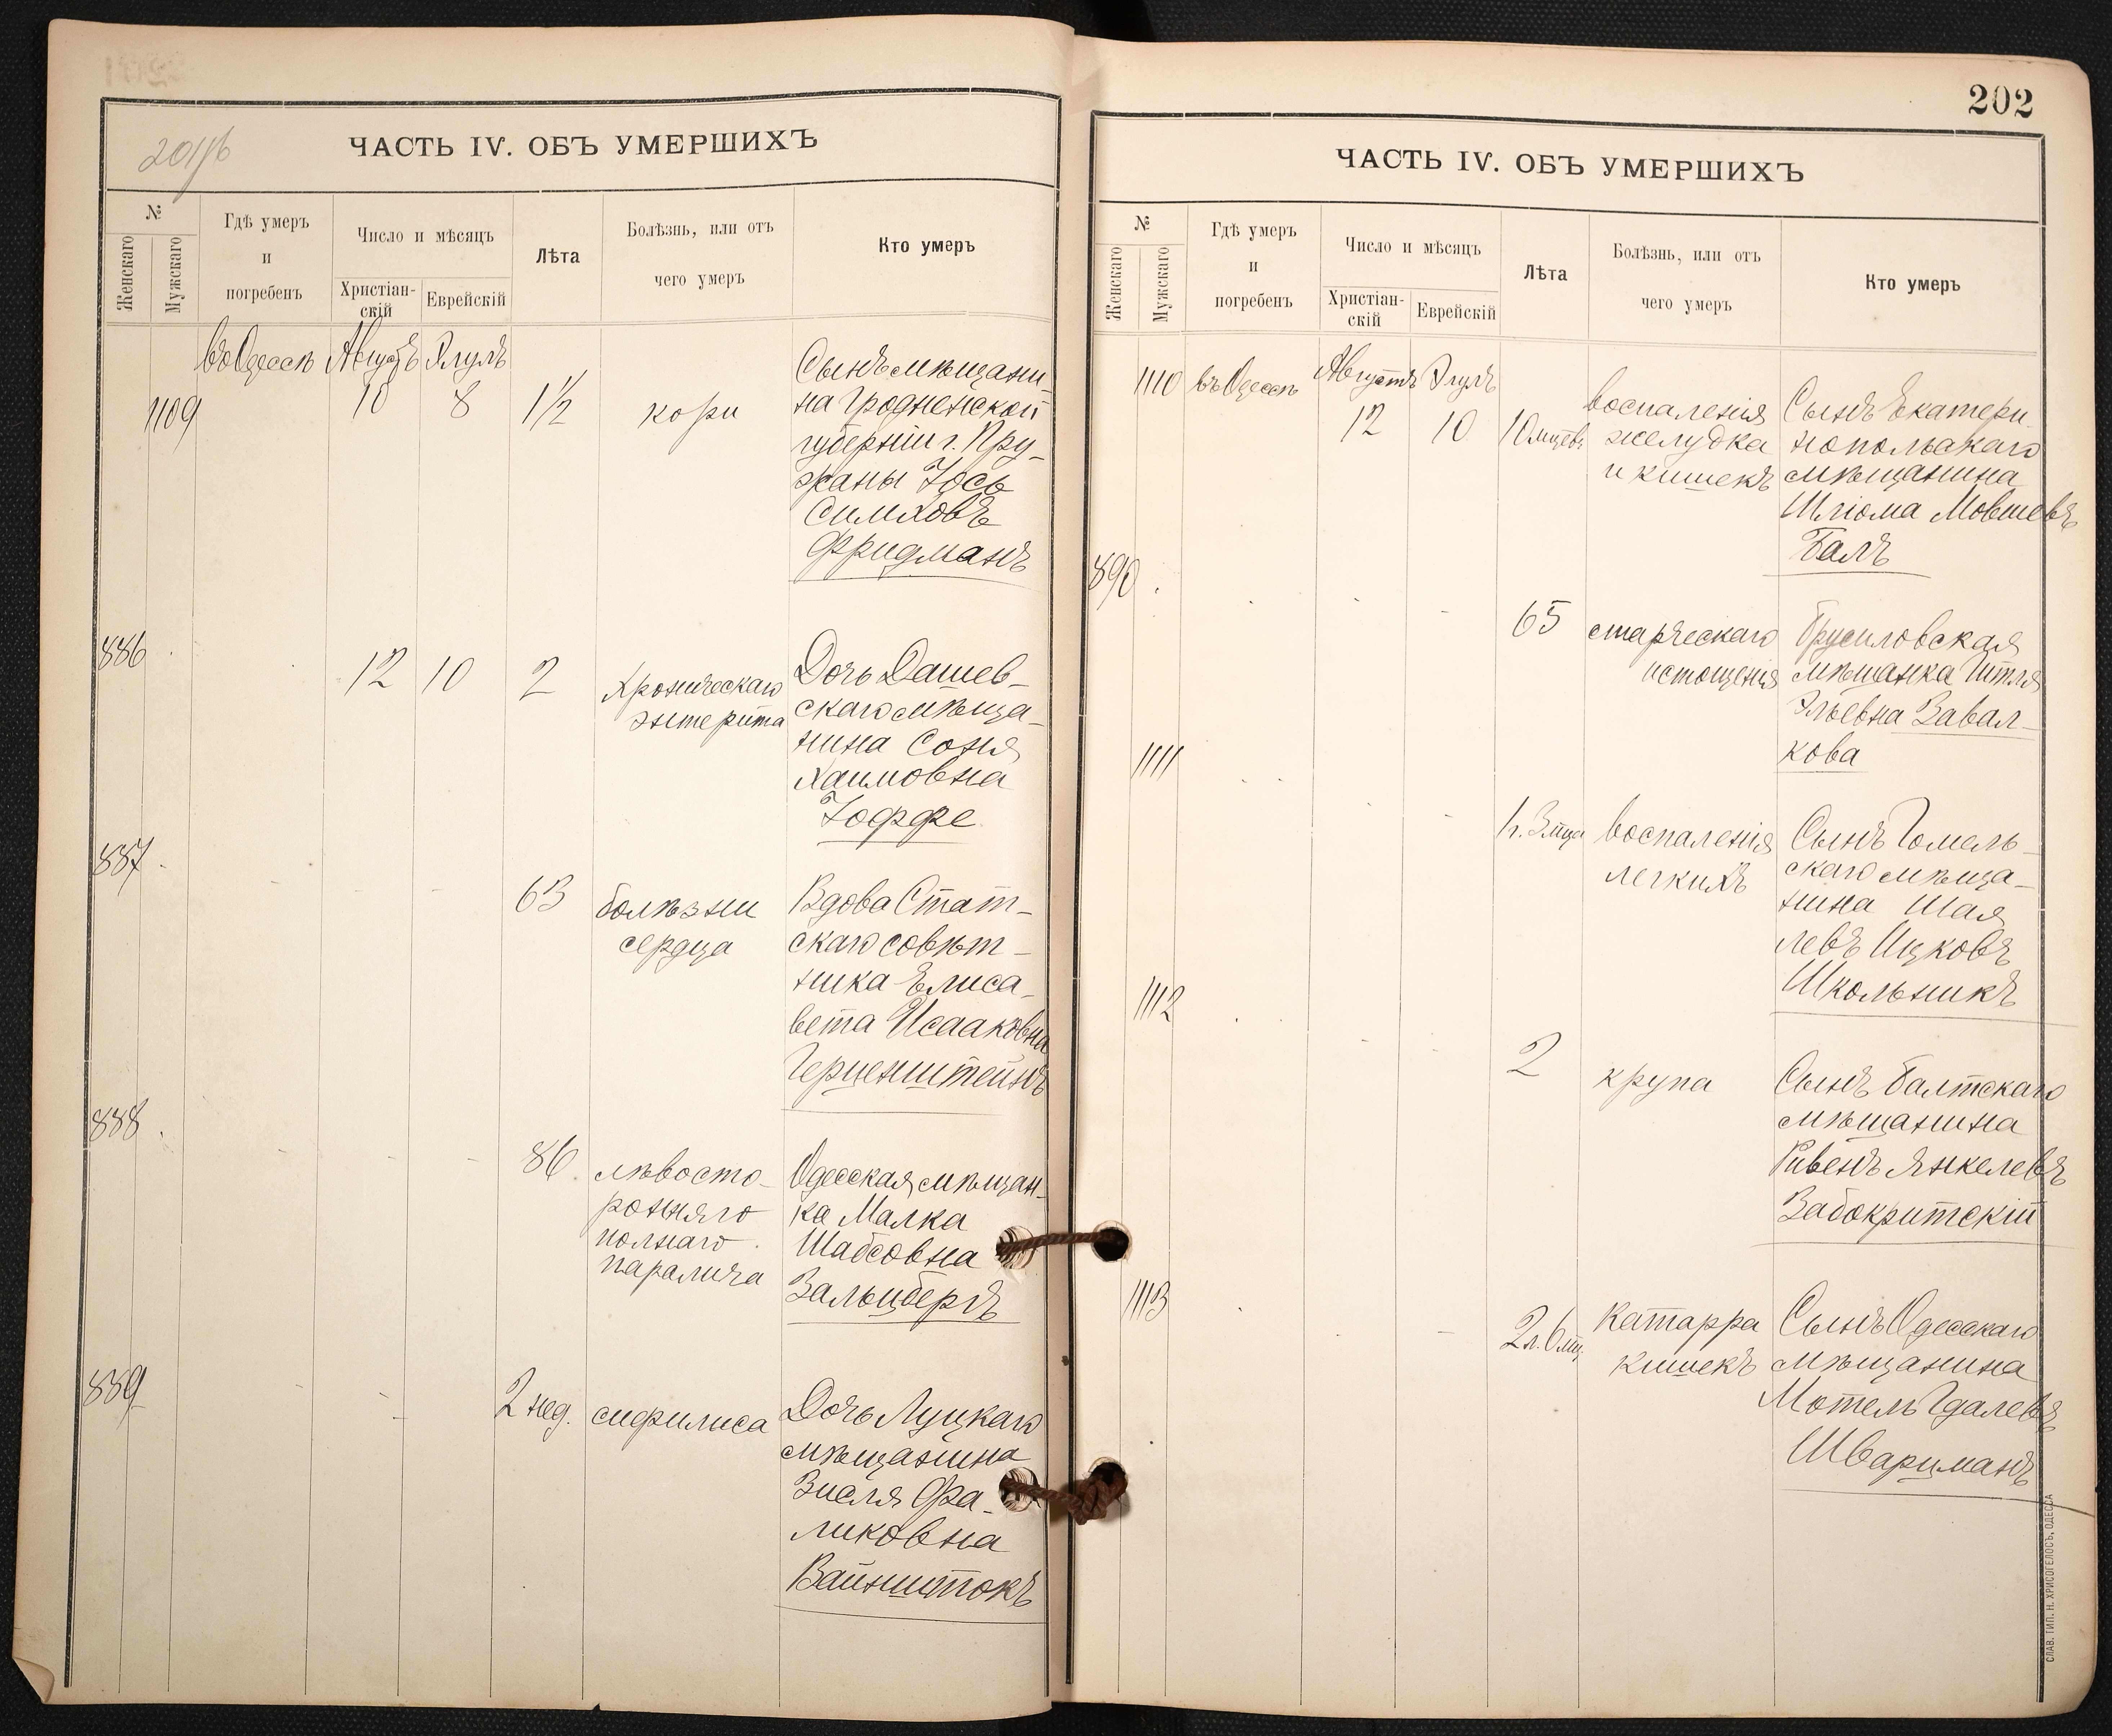 201/об
ЧАСТЬ IV. ОБЪ УМЕРШИХЪ
№
Женскаго
Мужскаго
Гдѣ умеръ
и
погребенъ
Число и мѣсяцъ
Христіан-
скій
Еврейскій
Лѣта
Болѣзнь, или отъ
чего умеръ
Кто умеръ
въ Одессѣ Августъ Элулъ
1109 10 8 1½ кори
Сынъ мѣщани-
на Гродненской
губерніи г. Пру-
жаны Іось
Симховъ
Фридманъ
886 12 10 2
Хроническаго
энтерита
Дочь Дашев-
скаго мѣща-
нина Соня
Хаимовна
Іоффе
887 63
болѣзни
сердца
Вдова Стат-
скаго совѣт-
ника Елиса-
вета Исааковна
Герценштейнъ
888 86
лѣвосто-
ронняго
полнаго
паралича
Одесская мѣщан-
ка Малка
Шабсовна
Зальцбергъ
889 2 нед. сифилиса
Дочь Луцкаго
мѣщанина
Зисля Фа-
ликовна
Вайнштокъ
202
ЧАСТЬ IV. ОБЪ УМЕРШИХЪ
№
Женскаго
Мужскаго
Гдѣ умеръ
и
погребенъ
Число и мѣсяцъ
Христіан-
скій
Еврейскій
Лѣта
Болѣзнь, или отъ
чего умеръ
Кто умеръ
1110 въ Одессѣ Августъ Элулъ
12 10 10 мцевъ
воспаленія
желудка
и кишекъ
Сынъ Екатери-
нопольскаго
мѣщанина
Шліома Мовшевъ
Балъ
890 65
старческаго
истощенія
Брусиловская
мѣщанка Итля
Эльевна Завал-
кова
1111 1 г. 3 мца
воспаленія
легкихъ
Сынъ Гомель-
скаго мѣща-
нина Шая
Левъ Ицковъ
Школьникъ
1112 2 крупа
Сынъ Балтскаго
мѣщанина
Ривенъ Янкелевъ
Забокритскій
1113 2 г. 6 мц.
катарра
кишекъ
Сынъ Одесскаго
мѣщанина
Мотель Гдалевъ
Шварцманъ
СЛАВ. ТИП. Н. ХРИСОГЕЛОСЪ, ОДЕССА